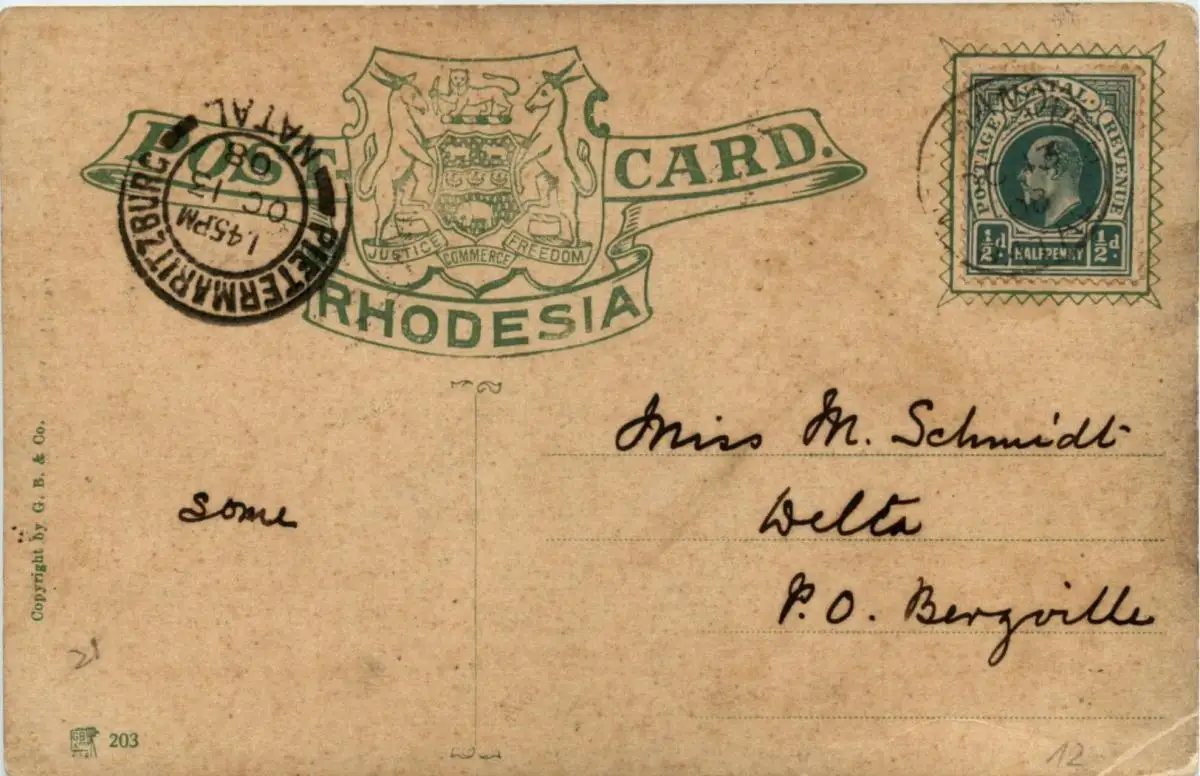 POST CARD.
JUSTICE COMMERCE FREEDOM
RHODESIA
PIETERMARITZBURG NATAL
1.45PM
OC 13
08
NATAL
POSTAGE REVENUE
½d HALFPENNY ½d.
Miss M. Schmidt
Delta
P.O. Bergville
some
Copyright by G. B. & Co.
21
203
12